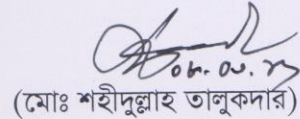 (মোঃ শহীদুল্লাহ তালুকদার)